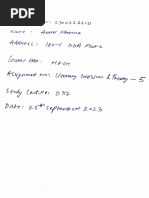 Name : Amit Khanna
Address : 184-C DDA Flats
Course Title : MEG
Assignment No: Literary Criticism & Theory - 5
Study Centre: 0712
Date: 25th September 2023